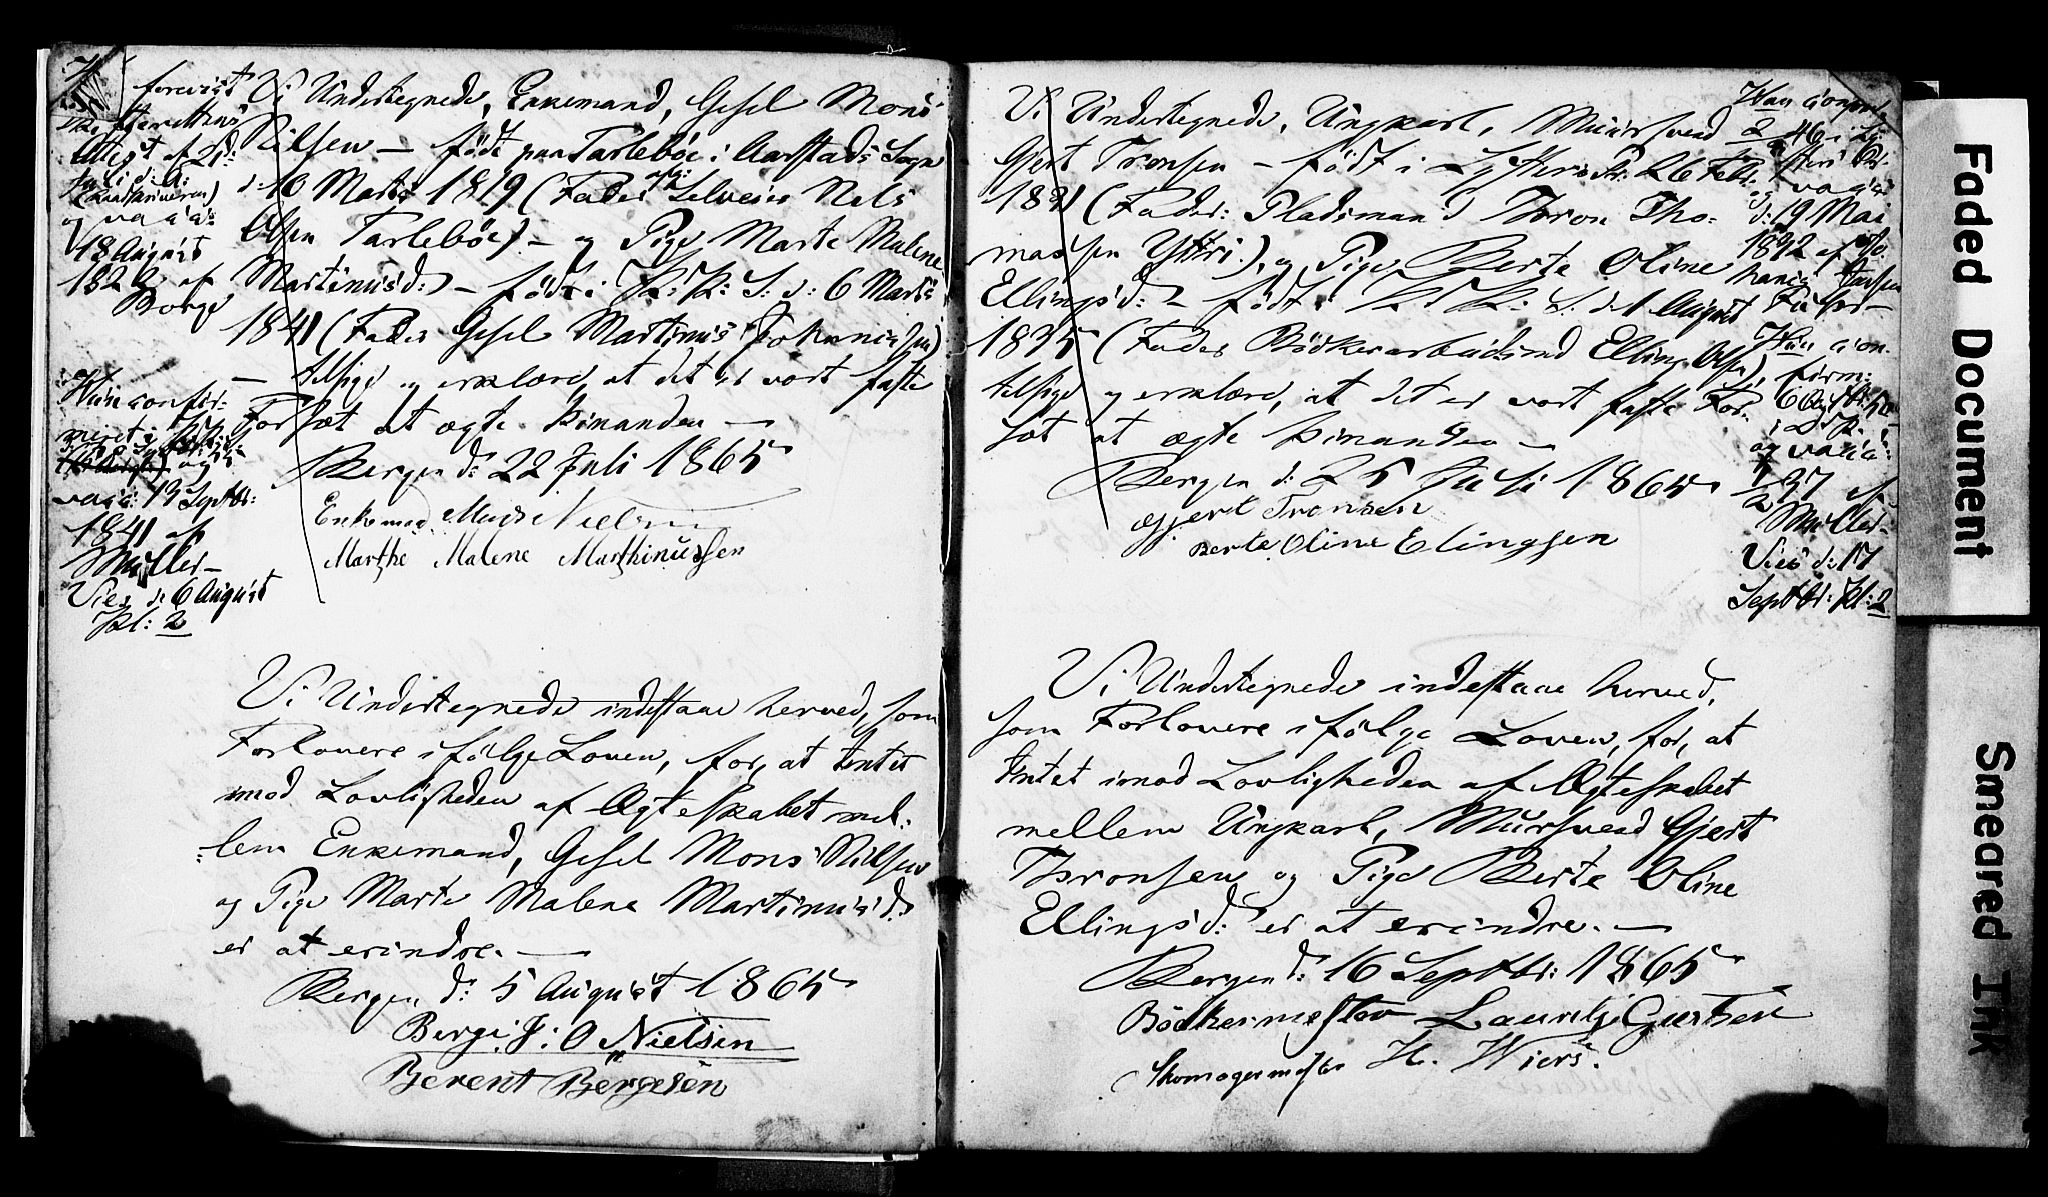 forevist
Skifterettens
Attest af 21de
Juli d. A.
og vacc:
18 August
1822 af
Borge
Vi Undertegnede, Enkemand, Gesel Mons
Nilsen — født paa Tarlebøe i Aarstads Sogn
d. 10 Marts 1819 (Fader afg: Selveier Nels
Olsen Tarlebøe) — og Pige Marte Malene
Martinusd: — født i K: K: S: d: 6 Marts
1841 (Fader Gesel Martinus Johannissen)
— tilsige og erklære, at det er vort faste
Forsæt at ægte hinanden —
Bergen d: 22 Juli 1865
Enkemand Mons Nielsen
Marthe Malene Marthinussen
Hun confir-
meret i
og
vacc: 13 Septbr:
1841 af
Müller —
Vies d: 6 August
Kl: 2
Vi Undertegnede indestaae herved, som
Forlovere ifølge Loven, for, at Intet
imod Lovligheden af Ægteskabet mel-
lem Enkemand, Gesel Mons Nilsen
og Pige Marte Malene Martinusd:
er at erindre. —
Bergen d: 5 August 1865
Berge J: O Nielsen
Berent Børgesen
Vi Undertegnede, Ungkarl, Muursvend
Gjert Tronsen — født i Lyster d: 26 Febr:
1821 (Fader: Pladsmand Thron Tho-
massen Yttri), og Pige Berte Oline
Ellingsd: — født i D K: S: d 1 August
1835 (Fader Bødkerarbeidsmd Elling Olsen),
tilsige og erklære, at det er vort faste For-
sæt at ægte hinanden —
Bergen d: 25 Juli 1865
Gjert Tronsen
Berte Oline Elingsen
Han
46 i Ly-
ster
vacc:
d: 19 Mai
1832 af
Hun con-
firm:
i D. K.
og vacc:
37 af
Müller —
Vies d: 17
Septbr: Kl: 2
Vi Undertegnede indestaae herved,
som Forlovere ifølge Loven, for, at
Intet imod Lovligheden af Ægteskabet
mellem Ungkarl, Mursvend Gjert
Thronsen og Pige Berte Oline
Ellingsd: er at erindre. —
Bergen d: 16 Septbr: 1865
Bødkermester Lauritz Gjertsen
Skomagermester H. Wiers.
Faded Document
Smeared Ink